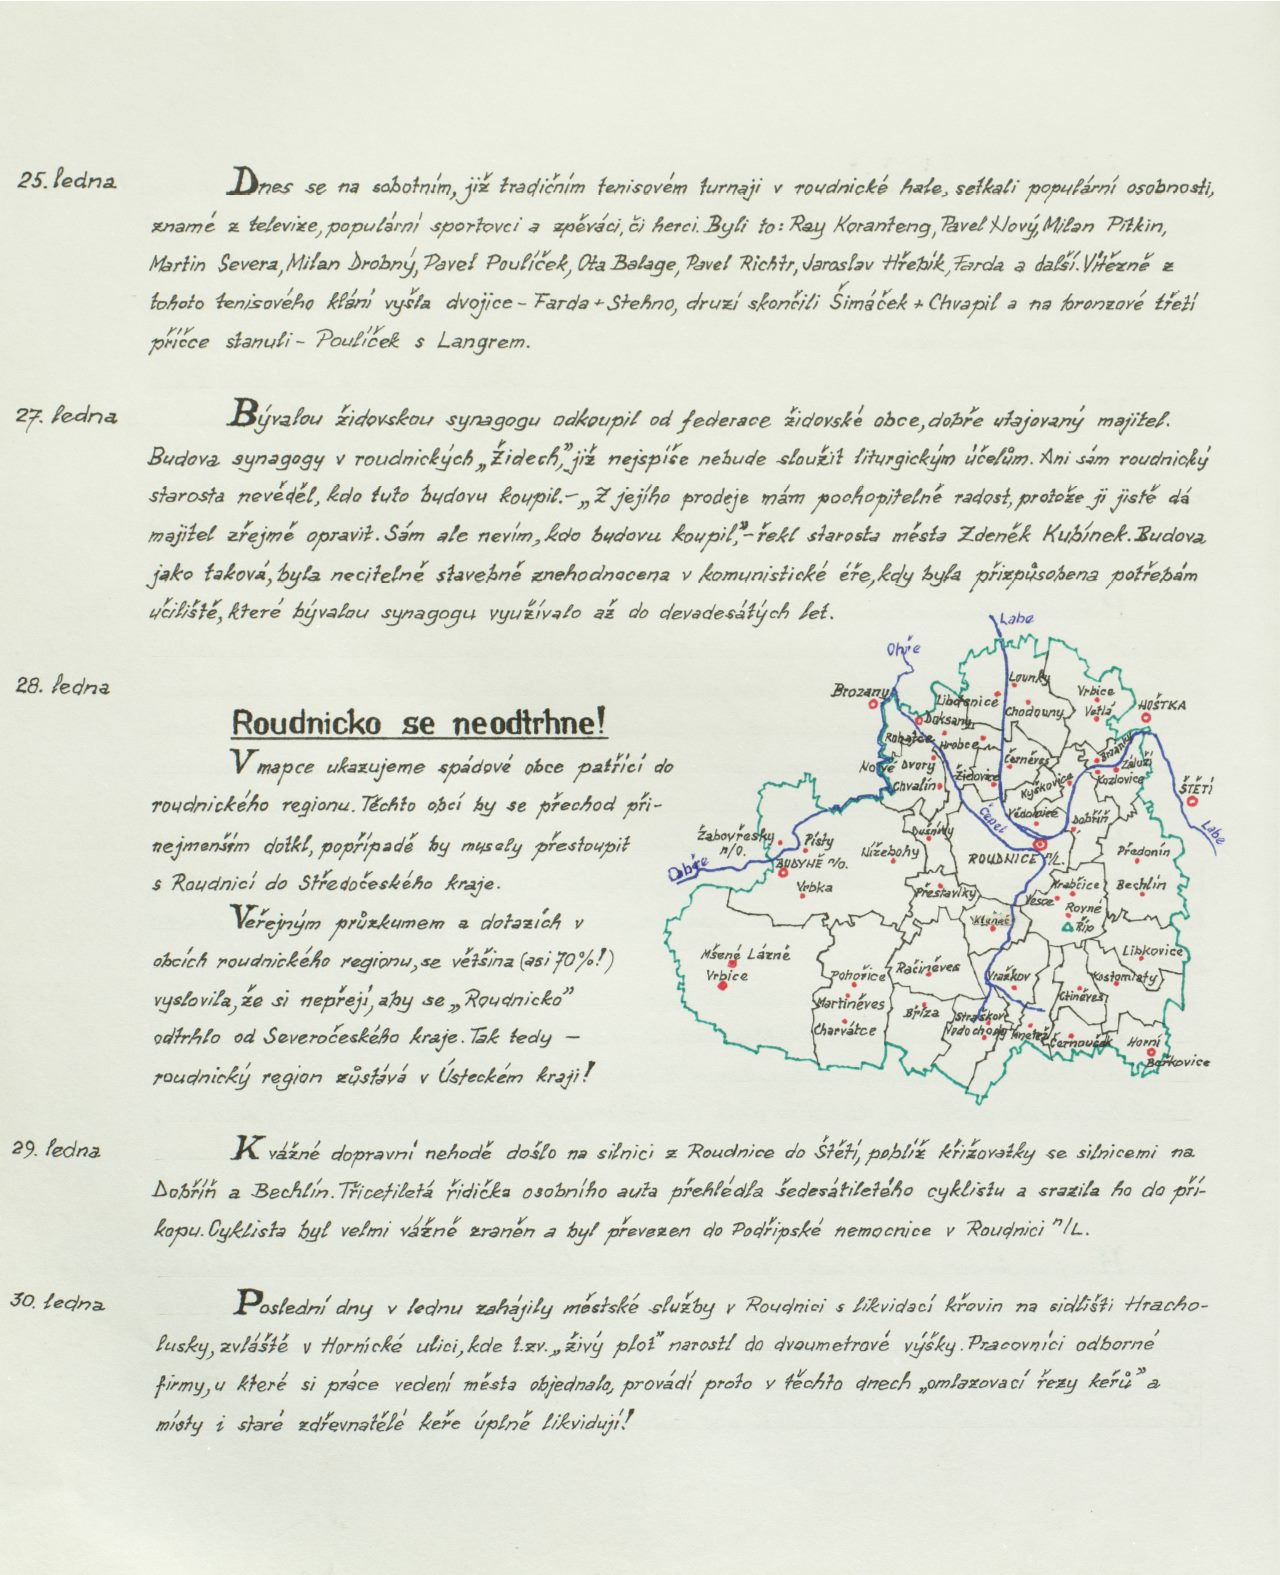 25. ledna
Dnes se na sobotním, již tradičním tenisovém turnaji v roudnické hale, setkali populární osobnosti,
známé z televize, populární sportovci a zpěváci, či herci. Byli to: Ray Koranteng, Pavel Nový, Milan Pitkin,
Martin Severa, Milan Drobný, Pavel Poulíček, Ota Balage, Pavel Richtr, Jaroslav Hřebík, Farda a další. Vítězně z
tohoto tenisového klání vyšla dvojice - Farda + Stehno, druzí skončili Šimáček + Chvapil a na bronzové třetí
příčce stanuli - Poulíček s Langrem.
27. ledna
Bývalou židovskou synagogu odkoupil od federace židovské obce, dobře utajovaný majitel.
Budova synagogy v roudnických „Židech," již nejspíše nebude sloužit liturgickým účelům. Ani sám roudnický
starosta nevěděl, kdo tuto budovu koupil. - „Z jejího prodeje mám pochopitelně radost, protože ji jistě dá
majitel zřejmě opravit. Sám ale nevím, kdo budovu koupil," - řekl starosta města Zdeněk Kubínek. Budova
jako taková, byla necitelně stavebně znehodnocena v komunistické éře, kdy byla přizpůsobena potřebám
učiliště, které bývalou synagogu využívalo až do devadesátých let.
28. ledna
Roudnicko se neodtrhne!
V mapce ukazujeme spádové obce patřící do
roudnického regionu. Těchto obcí by se přechod při-
nejmenším dotkl, popřípadě by musely přestoupit
s Roudnicí do Středočeského kraje.
Veřejným průzkumem a dotazích v
obcích roudnického regionu, se většina (asi 70%!)
vyslovila, že si nepřejí, aby se „Roudnicko"
odtrhlo od Severočeského kraje. Tak tedy -
roudnický region zůstává v Ústeckém kraji!
Labe
Ohře
Lounky
Brozany
Libotenice
Vrbice
Vetlá
HOŠTKA
Doksany
Chodouny
Rohatce
Hrobce
Nové Dvory
Černěves
Záluží
Chvalín
Židovice
Kyškovice
Kozlovice
ŠTĚTÍ
Vědomice
Čepel
Dobříň
Labe
Žabovřesky
n/O.
Písty
Dušníky
Nížebohy
ROUDNICE n/L.
Předonín
BUDYNĚ n/O.
Vrbka
Přestavlky
Vesce
Krabčice
Bechlín
Rovné
Kleneč
Říp
Mšené Lázně
Vrbice
Račiněves
Vražkov
Libkovice
Pohořice
Kostomlaty
Ctiněves
Martiněves
Bříza
Straškov
Vodochody
Charvátce
Černouček
Horní
Beřkovice
29. ledna
K vážné dopravní nehodě došlo na silnici z Roudnice do Štětí, poblíž křižovatky se silnicemi na
Dobříň a Bechlín. Třicetiletá řidička osobního auta přehlédla šedesátiletého cyklistu a srazila ho do pří-
kopu. Cyklista byl velmi vážně zraněn a byl převezen do Podřipské nemocnice v Roudnici n/L.
30. ledna
Poslední dny v lednu zahájily městské služby v Roudnici s likvidací křovin na sidlišti Hracho-
lusky, zvláště v Hornické ulici, kde t.zv. „živý plot" narostl do dvoumetrové výšky. Pracovníci odborné
firmy, u které si práce vedení města objednalo, provádí proto v těchto dnech „omlazovací řezy keřů" a
místy i staré zdřevnatělé keře úplně likvidují!